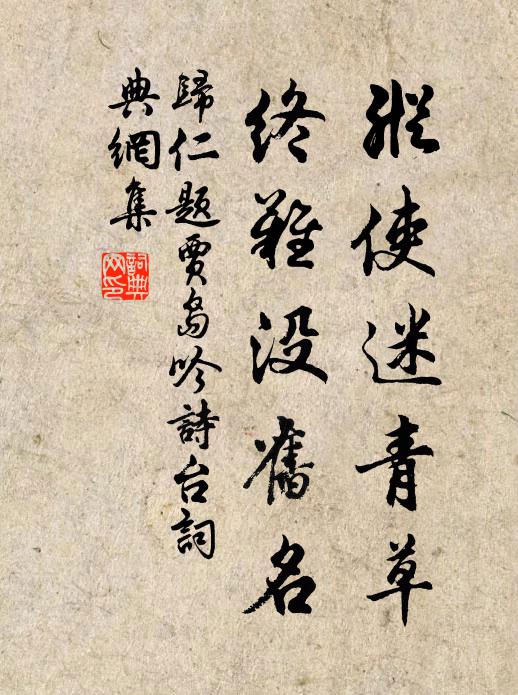 縱使迷青草
終難没舊名
歸仁題賈島吟詩台詞
典網集
詞典網印